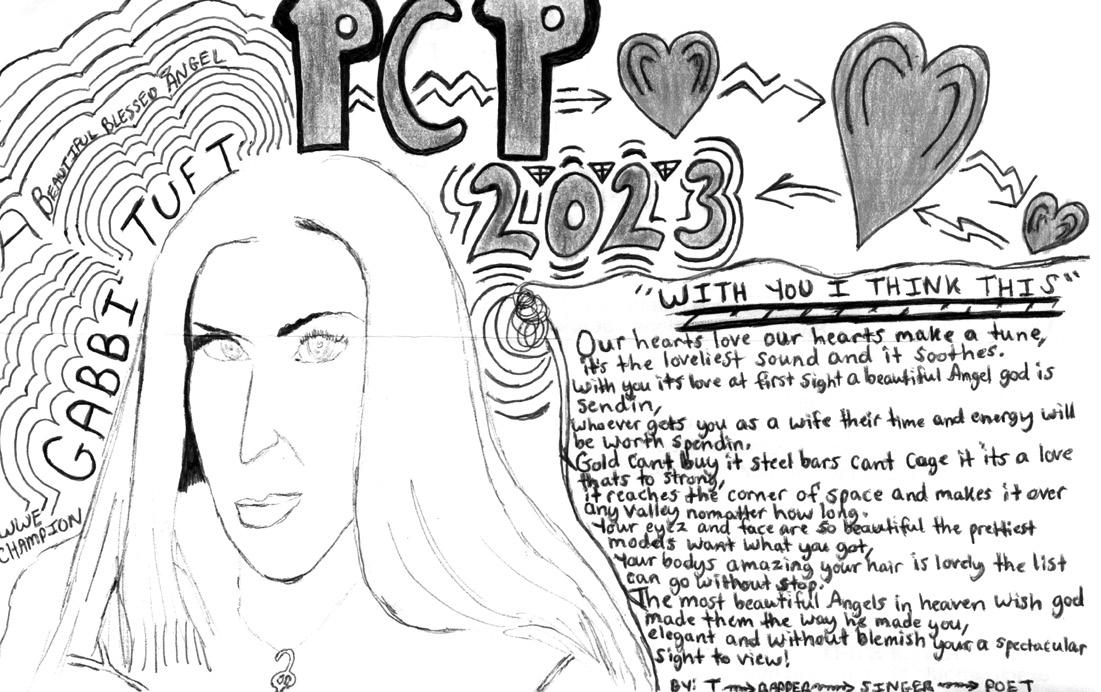 PCP
2023
A BEAUTIFUL BLESSED ANGEL
GABBI TUFT
WWE
CHAMPION
"WITH YOU I THINK THIS"
Our hearts love our hearts make a tune,
it's the loveliest sound and it soothes.
With you its love at first sight a beautiful Angel god is
sendin,
whoever gets you as a wife their time and energy will
be worth spendin.
Gold cant buy it steel bars cant cage it its a love
thats to strong,
it reaches the corner of space and makes it over
any valley nomatter how long.
Your eyez and face are so beautiful the prettiest
models want what you got,
Your bodys amazing your hair is lovely the list
can go without stop.
The most beautiful Angels in heaven wish god
made them the way he made you,
elegant and without blemish your a spectacular
sight to view!
BY: T RAPPER SINGER POET